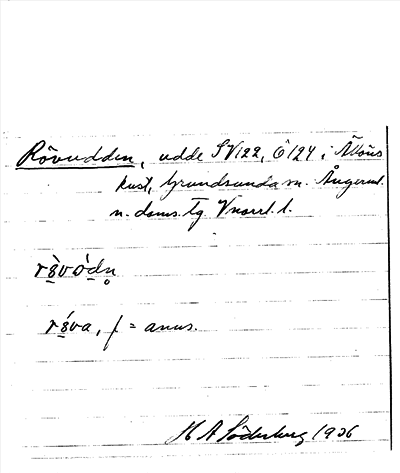 Rövudden, udde SV122, Ö124 i Ällöns
kust, Grundsunda sn. Ångerml.
n. doms. Tg. Vnorrl. l.
rs̀vo᷄dn̥
rśva, f = anus.
H A Söderberg 1936